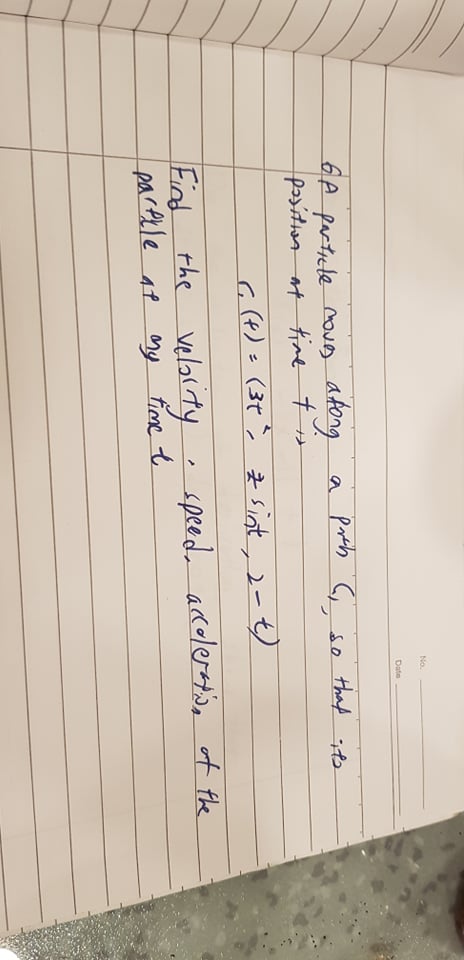 No.
Date
6A particle moves along a path C₁, so that its
position at time t is
r₁(t) = (3t², 2 sint, 2-t)
Find the velocity, speed, acceleration of the
particle at any time t